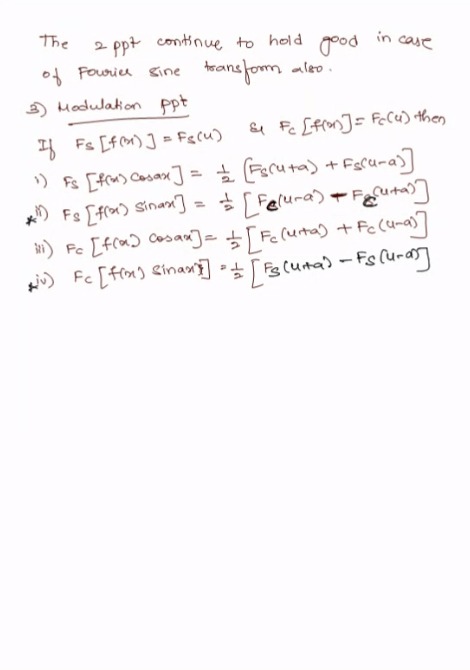 The 2 ppt continue to hold good in case
of Fourier sine transform also.
3) Modulation ppt
If Fs [f(x)] = Fs(u) & Fc [f(x)] = Fc(u) then
i) Fs [f(x) cosax] = 1/2 [Fs(u+a) + Fs(u-a)]
*ii) Fs [f(x) sinax] = 1/2 [Fc(u-a) - Fc(u+a)]
iii) Fc [f(x) cosax] = 1/2 [Fc(u+a) + Fc(u-a)]
*iv) Fc [f(x) sinax] = 1/2 [Fs(u+a) - Fs(u-a)]